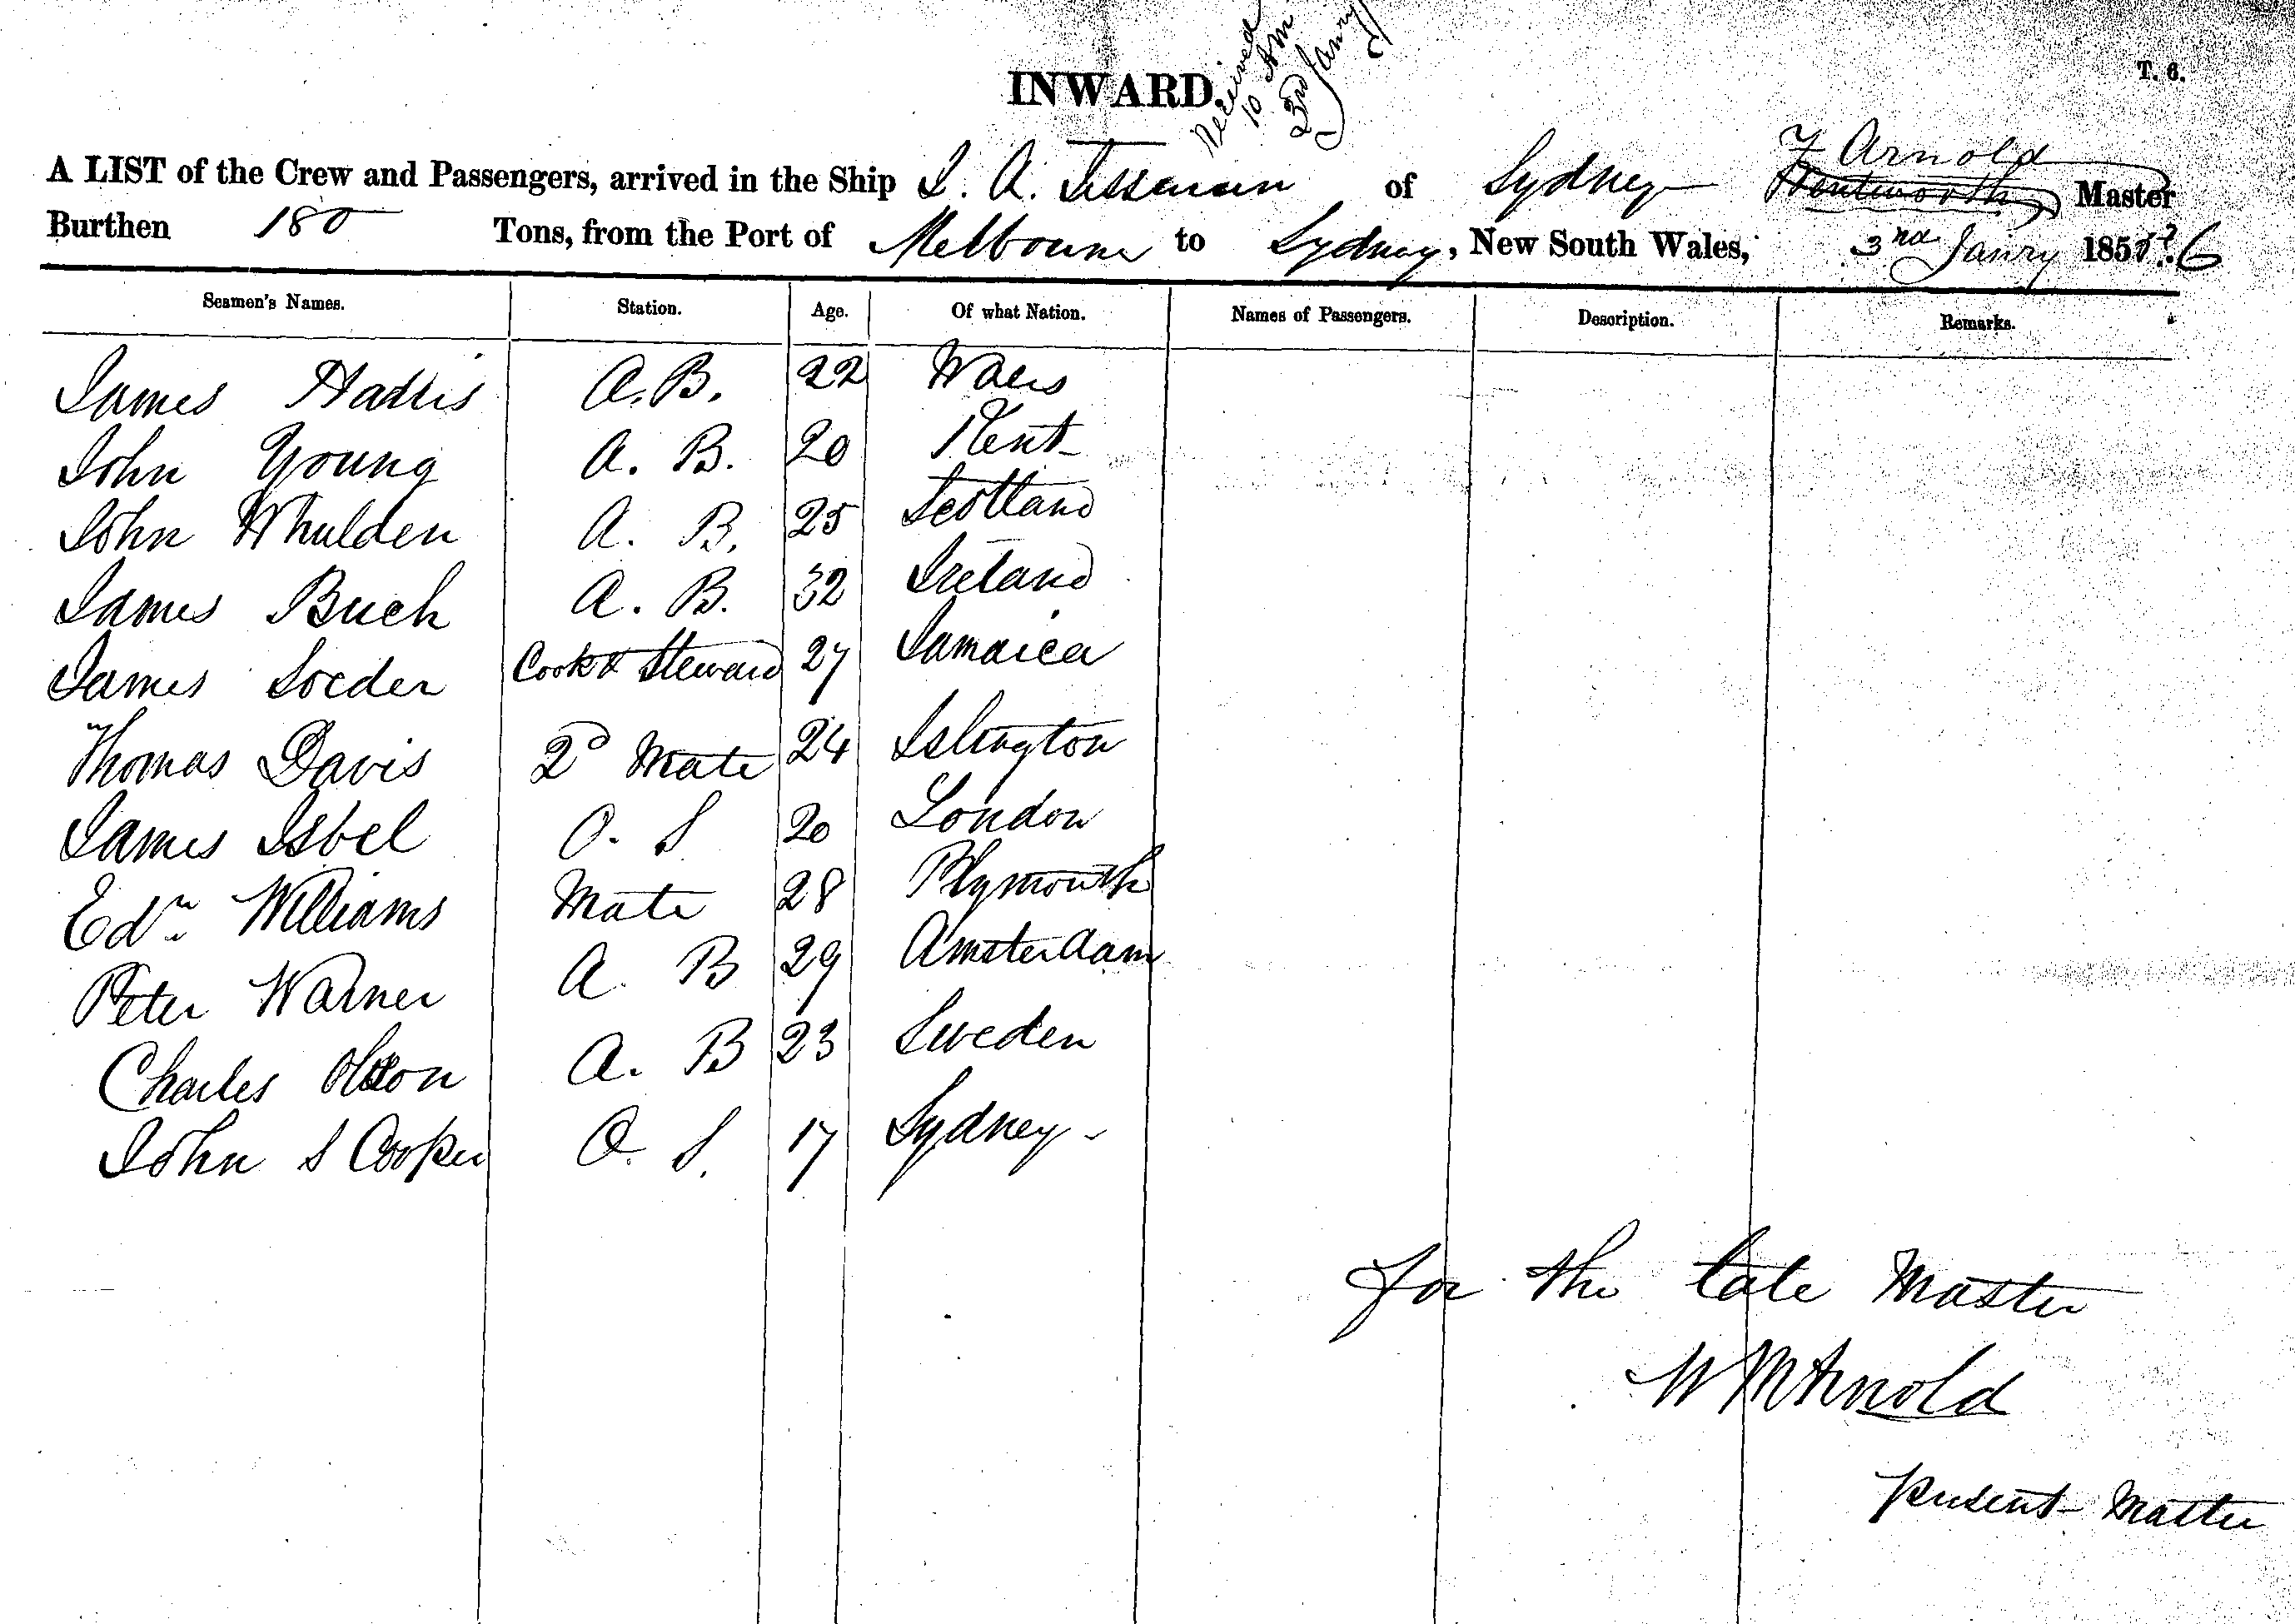 Received
10 AM
3rd Janry
INWARD.
T. 6.
Arnold
A LIST of the Crew and Passengers, arrived in the Ship of Sydney Wentworth Master
Burthen 180 Tons, from the Port of Melbourne to Sydney, New South Wales, 3rd Janry 185 6
Seamen's Names. Station. Age. Of what Nation. Names of Passengers. Description. Remarks.
James A.B. 22 Wales
John Young A. B. 20 Kent
John Whulden A. B. 25 Scotland
James Buch A. B. 32 Ireland
James Soeder Cook & Steward 27 Jamaica
Thomas Davis 2d Mate 24 Islington
James Isbel O. S 20 London
Edn Williams Mate 28 Plymouth
Peter Warner A. B 29 Amsterdam
Charles Olson A. B 23 Sweden
John S Cooper O. S. 17 Sydney
For the late Master
W M Arnold
present Master